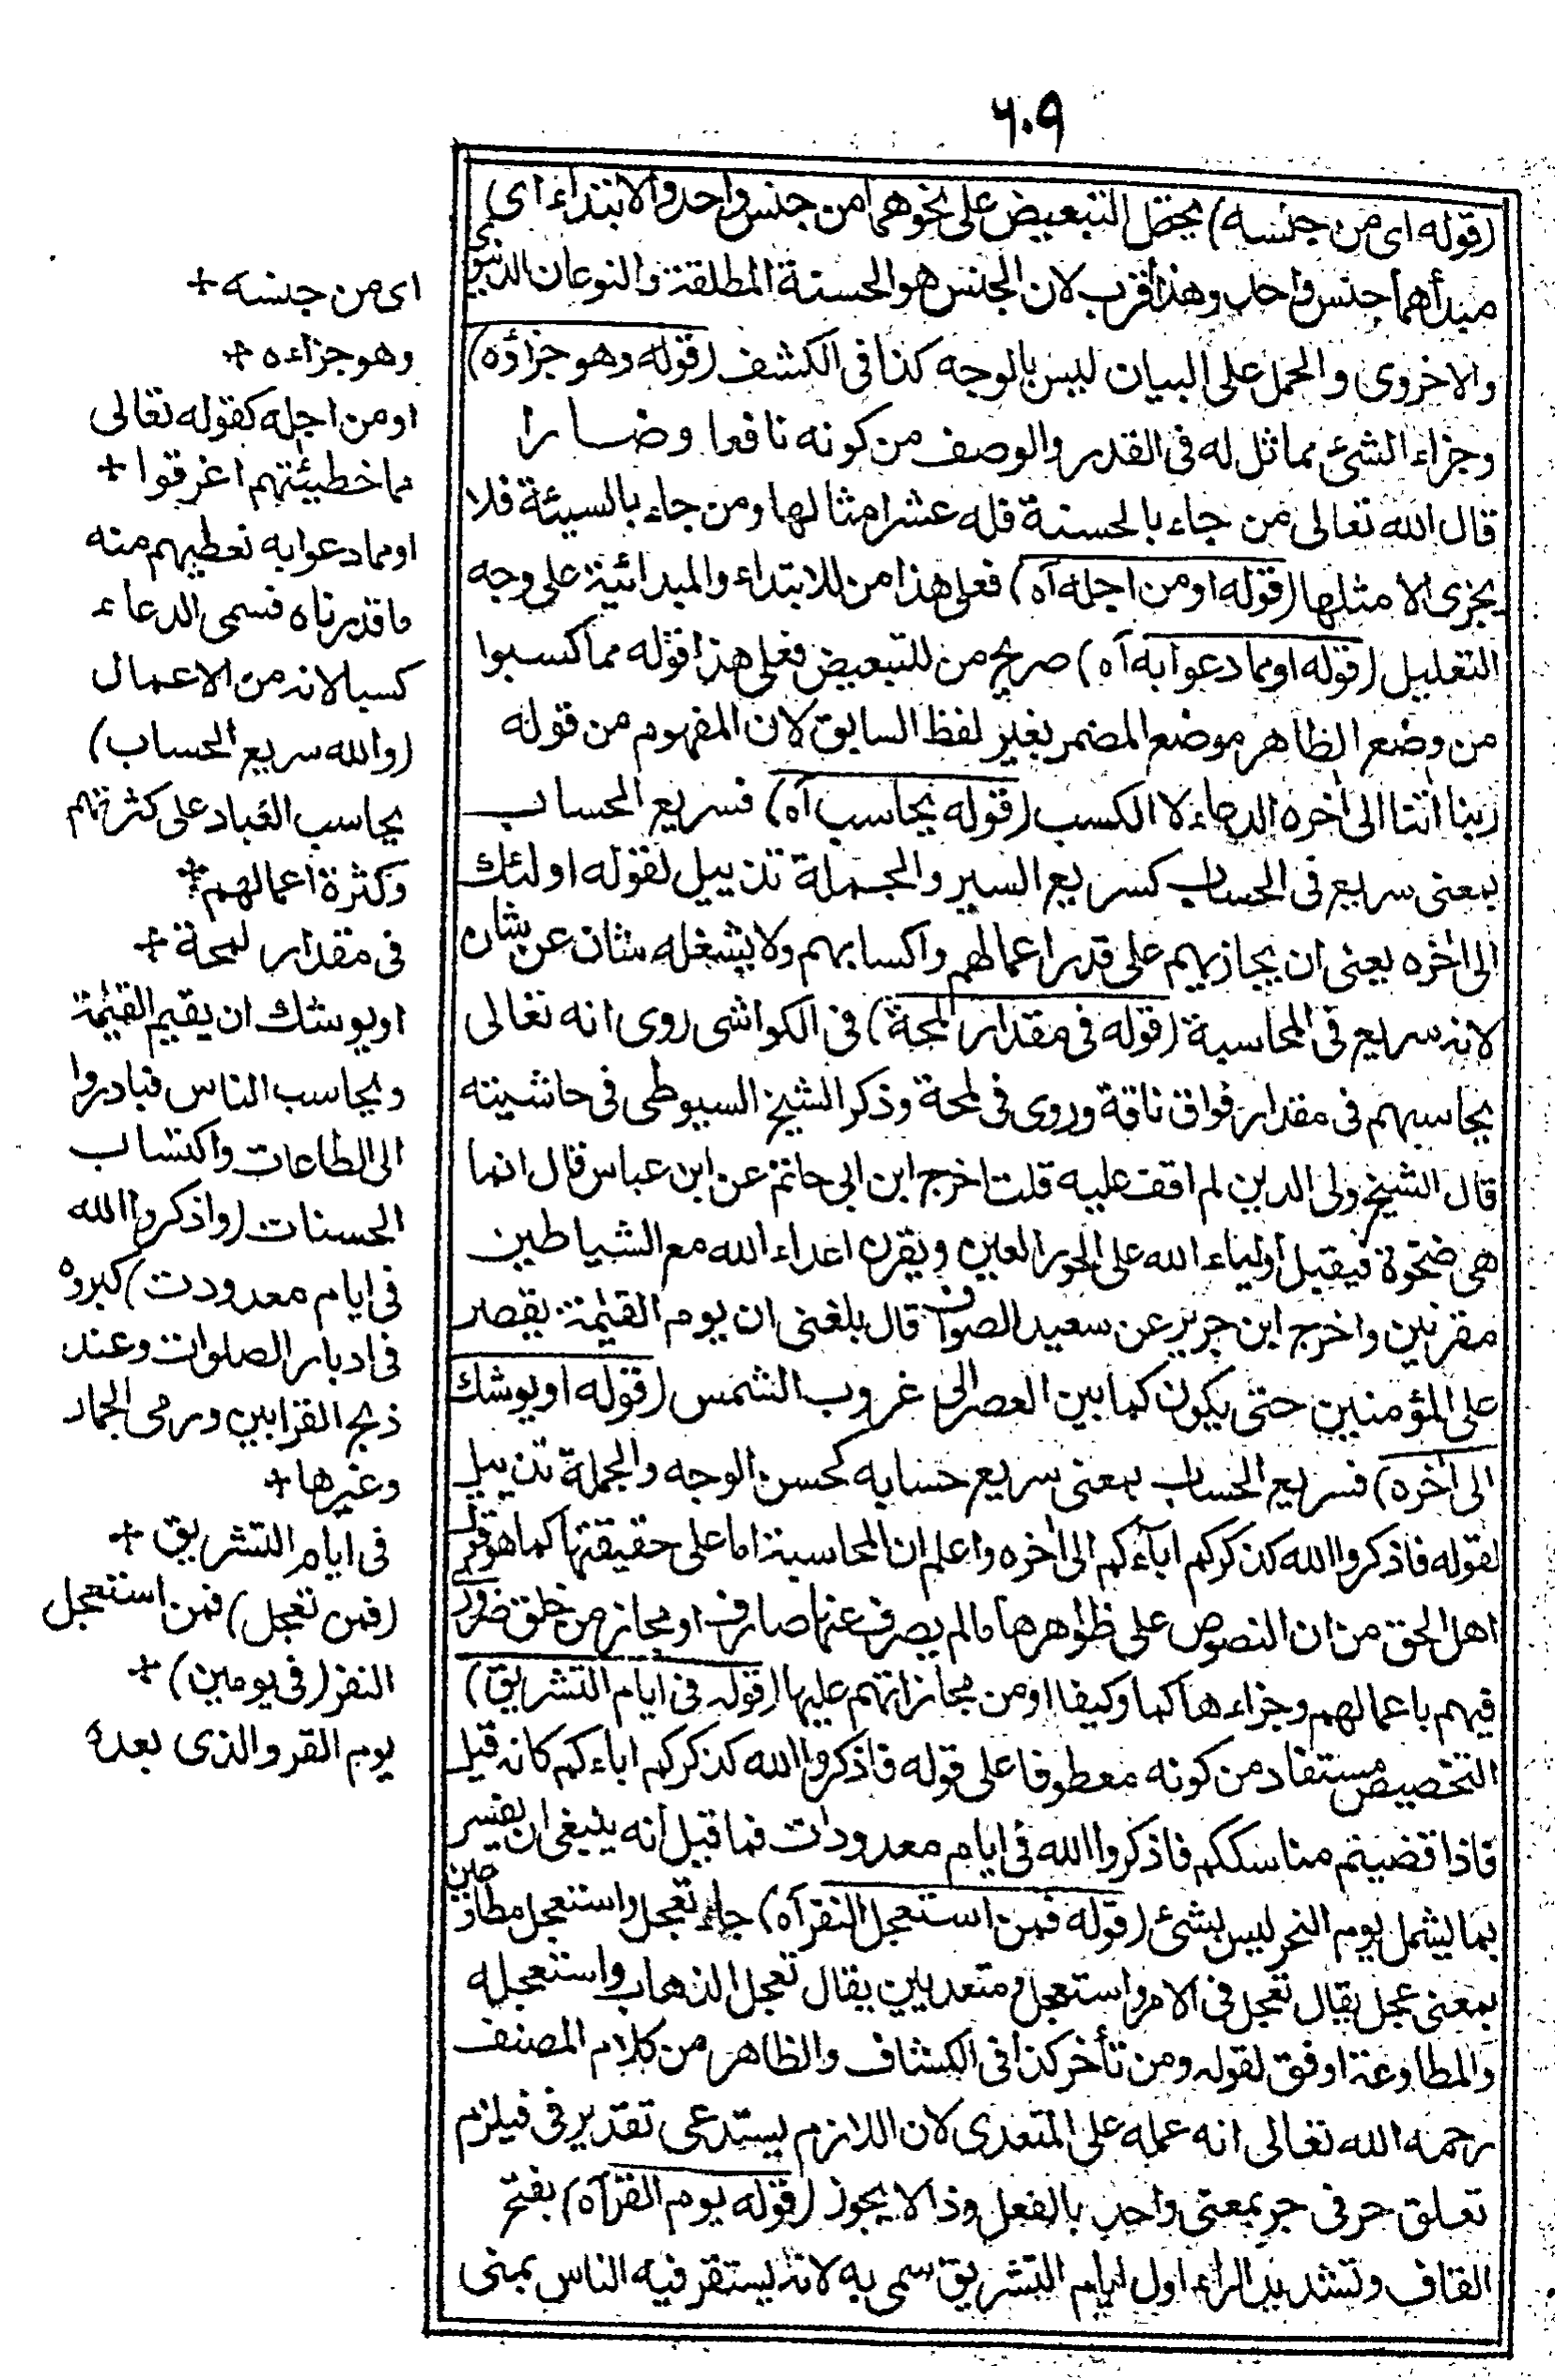 ٦٠٩
(قوله اى من جنسه) يحتمل التبعيض على نحو هما من جنس واحد والابتداء اى
مبدأهما جنس واحد وهذا اقرب لان الجنس هو الحسنة المطلقة والنوعان الدنيوى
والاخروى والحمل على البيان ليس بالوجه كذا فى الكشف (قوله وهو جزاؤه)
وجزاء الشئ مماثل له فى القدر والوصف من كونه نافعا وضارا
قال الله تعالى من جاء بالحسنة فله عشر امثالها ومن جاء بالسيئة فلا
يجزى الا مثلها (قوله او من اجله آه) فعلى هذا من للابتداء والمبدائية على وجه
التعليل (قوله او مما دعوا به آه) صريح من للتبعيض فعلى هذا قوله مما كسبوا
من وضع الظاهر موضع المضمر بغير لفظ السابق لان المفهوم من قوله
ربنا اتنا الى اخره الدعاء لا الكسب (قوله يحاسب آه) فسريع الحساب
بمعنى سريع فى الحساب كسريع السير والجملة تذييل لقوله اولئك
الى اخره يعنى ان يجازيهم على قدر اعمالهم واكسابهم ولا يشغله شان عن شان
لانه سريع فى المحاسبة (قوله فى مقدار لمحة) فى الكواشى روى انه تعالى
يحاسبهم فى مقدار فواق ناقة وروى فى لمحة وذكر الشيخ السيوطى فى حاشيته
قال الشيخ ولى الدين لم اقف عليه قلت اخرج ابن ابى حاتم عن ابن عباس قال انما
هى ضحوة فيقيل اولياء الله على الحور العين ويقرن اعداء الله مع الشياطين
مقرنين واخرج ابن جرير عن سعيد الصواف قال بلغنى ان يوم القيمة يقصر
على المؤمنين حتى يكون كما بين العصر الى غروب الشمس (قوله او يوشك
الى اخره) فسريع الحساب بمعنى سريع حسابه كحسن الوجه والجملة تذييل
لقوله فاذكروا الله كذكركم اباءكم الى اخره واعلم ان المحاسبة اما على حقيقتها كما هو قول
اهل الحق من ان النصوص على ظواهرها ما لم يصرف عنها صارف او مجاز من خلق ضرورى
فيهم باعمالهم وجزاءها كما وكيفا او من مجازاتهم عليها (قوله فى ايام التشريق)
التخصيص مستفاد من كونه معطوفا على قوله فاذكروا الله كذكركم اباءكم كانه قيل
فاذا قضيتم مناسككم فاذكروا الله فى ايام معدودات فما قيل انه ينبغى ان يفسر
بما يشمل يوم النحر ليس بشئ (قوله فمن استعجل النفر آه) جاء تعجل واستعجل مطاوعين
بمعنى عجل يقال تعجل فى الامر واستعجل ومتعديين يقال تعجل الذهاب واستعجله
والمطاوعة اوفق لقوله ومن تأخر كذا فى الكشاف والظاهر من كلام المصنف
رحمه الله تعالى انه حمله على المتعدى لان اللازم يستدعى تقدير فى فيلزم
تعلق حرفى جر بمعنى واحد بالفعل وذا لا يجوز (قوله يوم القر آه) بفتح
القاف وتشديد الراء اول ايام التشريق سمى به لانه يستقر فيه الناس بمنى
اى من جنسه +
وهو جزاءه +
او من اجله كقوله تعالى
مما خطيئتهم اغرقوا +
او مما دعوا به نعطيهم منه
ما قدرناه فسمى الدعاء
كسبا لانه من الاعمال
(والله سريع الحساب)
يحاسب العباد على كثرتهم
وكثرة اعمالهم +
فى مقدار لمحة +
او يوشك ان يقيم القيمة
ويحاسب الناس فبادروا
الى الطاعات واكتساب
الحسنات (واذكروا الله
فى ايام معدودت) كبروه
فى ادبار الصلوات وعند
ذبح القرابين ورمى الجمار
وغيرها +
فى ايام التشريق +
(فمن تعجل) فمن استعجل
النفر (فى يومين) +
يوم القر والذى بعده